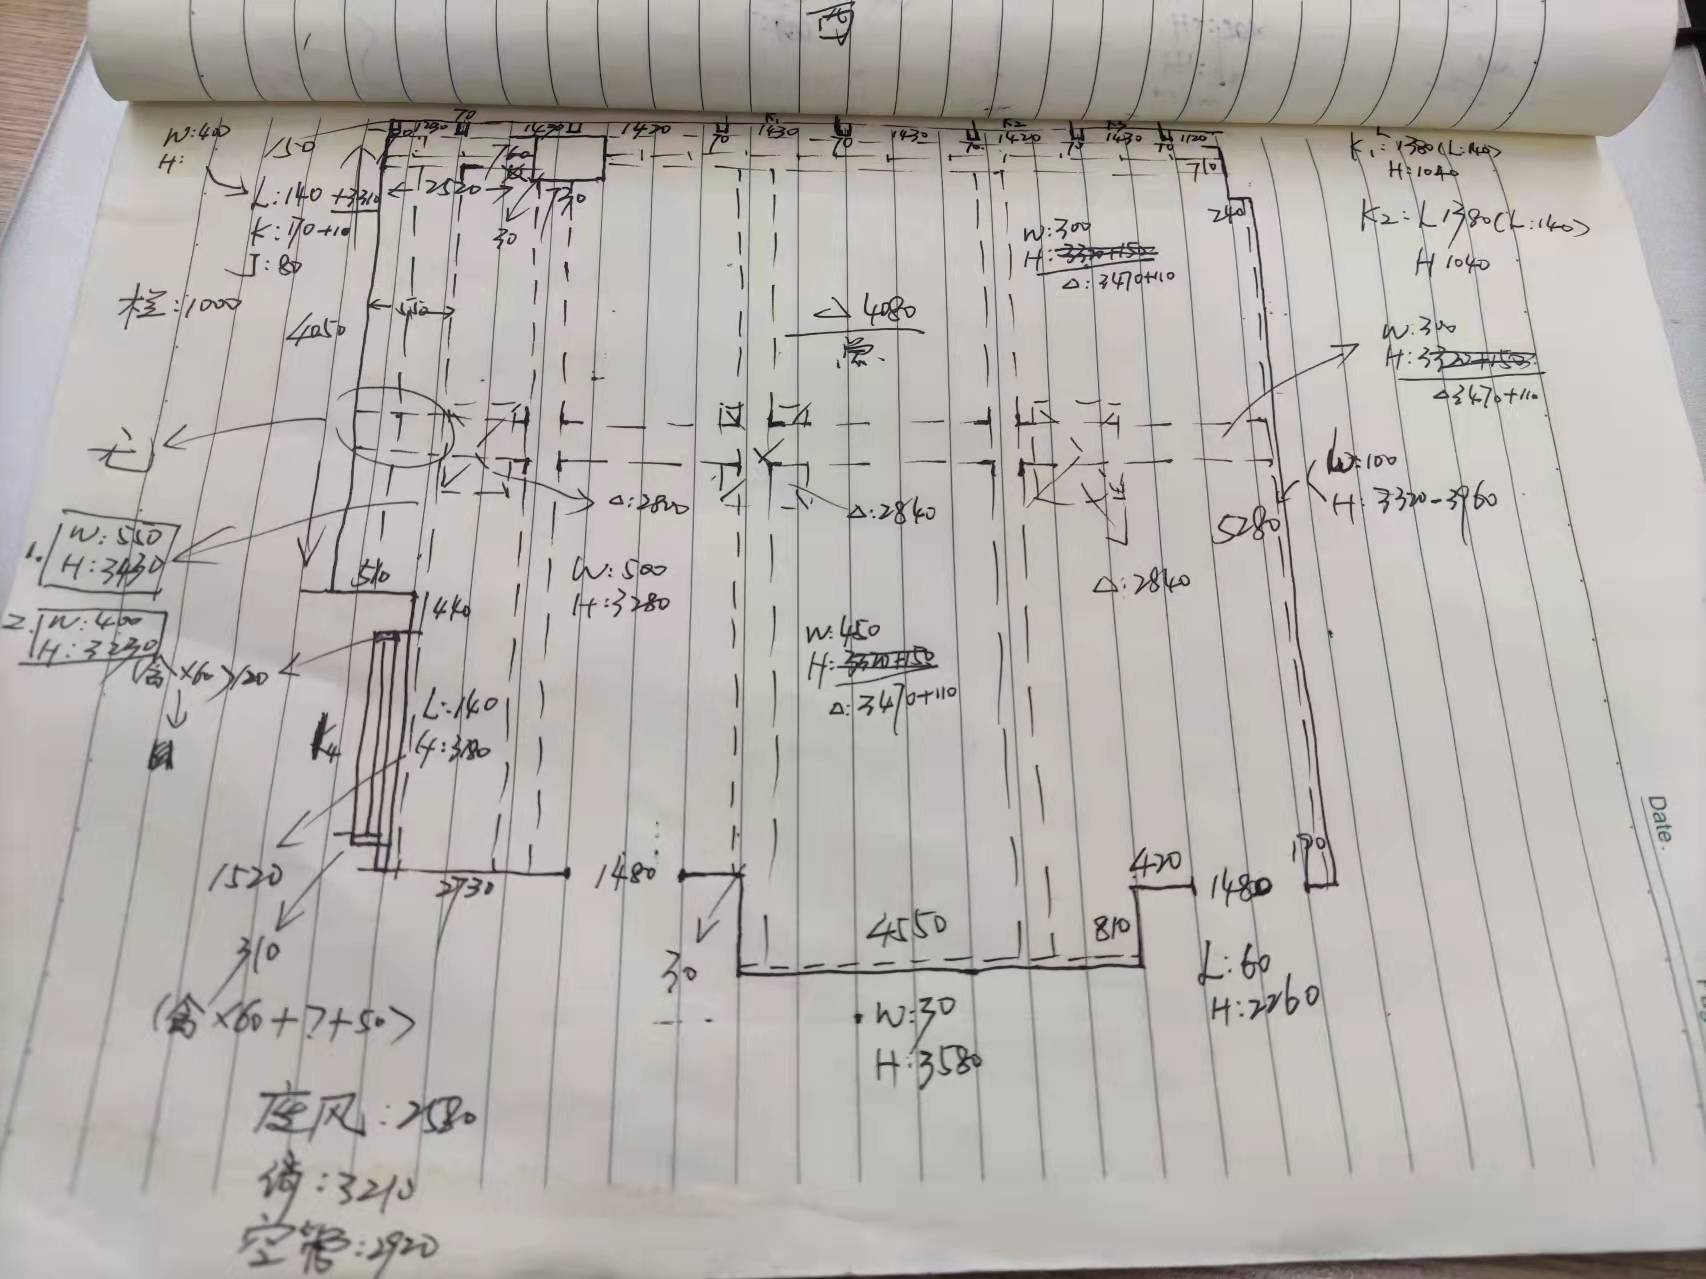 W:400
H:
150
L:140 +3310
K:170+10
J:80
栏:1000
4050
2520
760
30
730
70
1430
1430
70
1430
70
1430
70
K2
1420
70
1430
70
1120
710
240
K1:1380(L:140)
H:1040
K2:L1380(L:140)
H 1040
W:300
H:3320+150
△:3470+110
△4080
W:300
H:3320+150
△3470+110
W:100
H:3320-3960
5280
△:2800
△:2840
△:2840
1.
W:550
H:3430
2.
W:400
H:3230
510
440
W:500
H:3280
W:450
H:3320+150
△:3470+110
(含×60)120
K4
L:140
H:3180
1520
310
(含×60+?+50)
2730
1480
30
4550
810
420
1480
190
L:60
H:2260
W:30
H:3580
风:2580
:3210
空管:2920
Date.